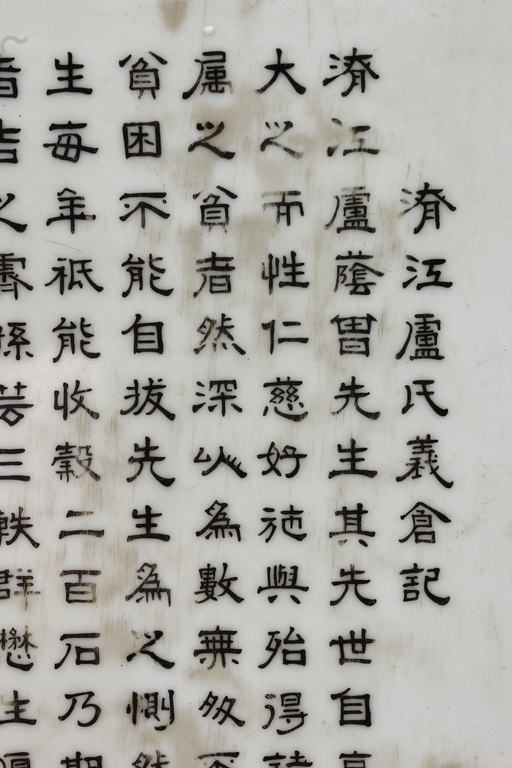 潸江盧氏義倉記
潸江盧蔭冑先生其先世自
大之而性仁慈好施與殆得
屬之貧者然深以為數無多
貧困不能自拔先生為之惻然
生每年祗能收穀二百石乃期
者吉之霽縣芸三軼群懋生